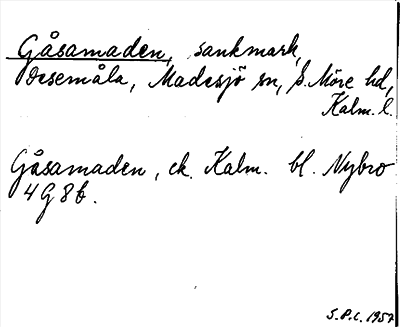 Gåsamaden, sankmark,
Orsemåla, Madesjö sn, S. Möre hd,
Kalm. l.
Gåsamaden, ek. Kalm. bl. Nybro
4 G 8 b.
S.P.C. 1957